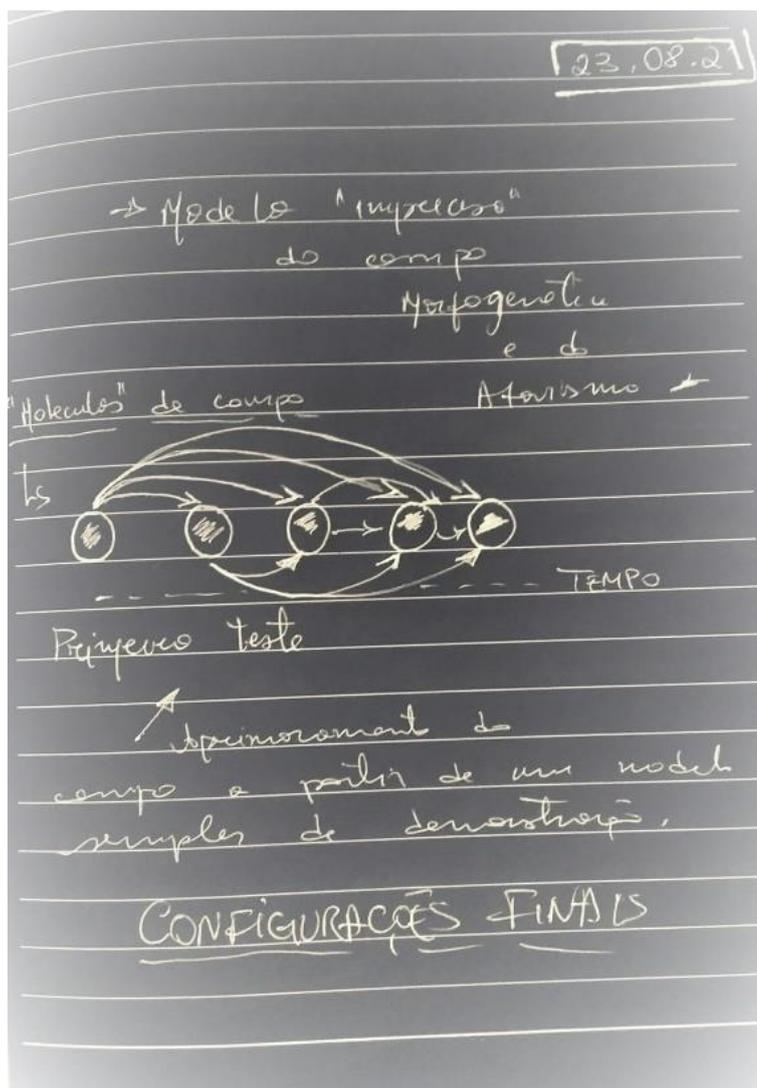 23.08.21
→ Modelo "impreciso"
do campo
Morfogenético
e do
Atavismo
"Moleculas" de campo
Ls
TEMPO
Primeiro teste
Aprimoramento do
campo a partir de um modelo
simples de demonstração.
CONFIGURAÇÕES FINAIS